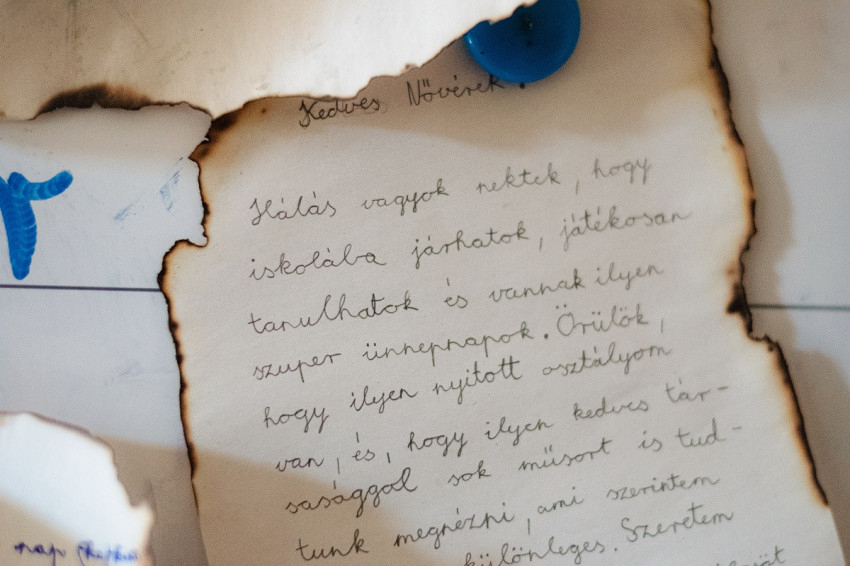 Kedves Nővérek!
Hálás vagyok nektek, hogy
iskolába járhatok, játékosan
tanulhatok és vannak ilyen
szuper ünnepnapok. Örülök,
hogy ilyen nyitott osztályom
van, és, hogy ilyen kedves tár-
sasággal sok műsort is tud-
tunk megnézni, ami szerintem
különleges. Szeretem
nap